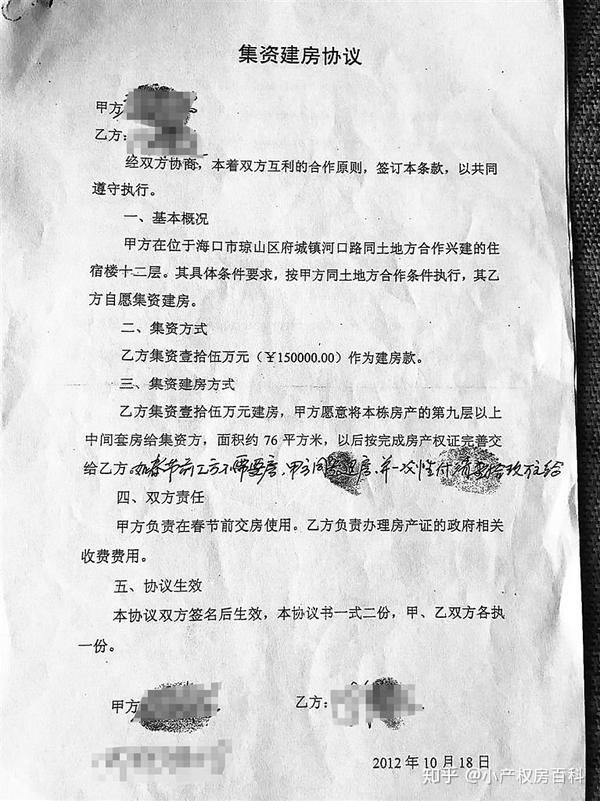 集资建房协议
甲方
乙方:
经双方协商，本着双方互利的合作原则，签订本条款，以共同
遵守执行。
一、基本概况
甲方在位于海口市琼山区府城镇河口路同土地方合作兴建的住
宿楼十二层。其具体条件要求，按甲方同土地方合作条件执行，其乙
方自愿集资建房。
二、集资方式
乙方集资壹拾伍万元（￥150000.00）作为建房款。
三、集资建房方式
乙方集资壹拾伍万元建房，甲方愿意将本栋房产的第九层以上
中间套房给集资方，面积约 76 平方米，以后按完成房产权证完善交
给乙方。如春节前乙方不需要房，甲方同意退房，并一次性付
四、双方责任
甲方负责在春节前交房使用。乙方负责办理房产证的政府相关
收费费用。
五、协议生效
本协议双方签名后生效，本协议书一式二份，甲、乙双方各执
一份。
甲方 乙方:
2012 年 10 月 18 日
知乎 @小产权房百科